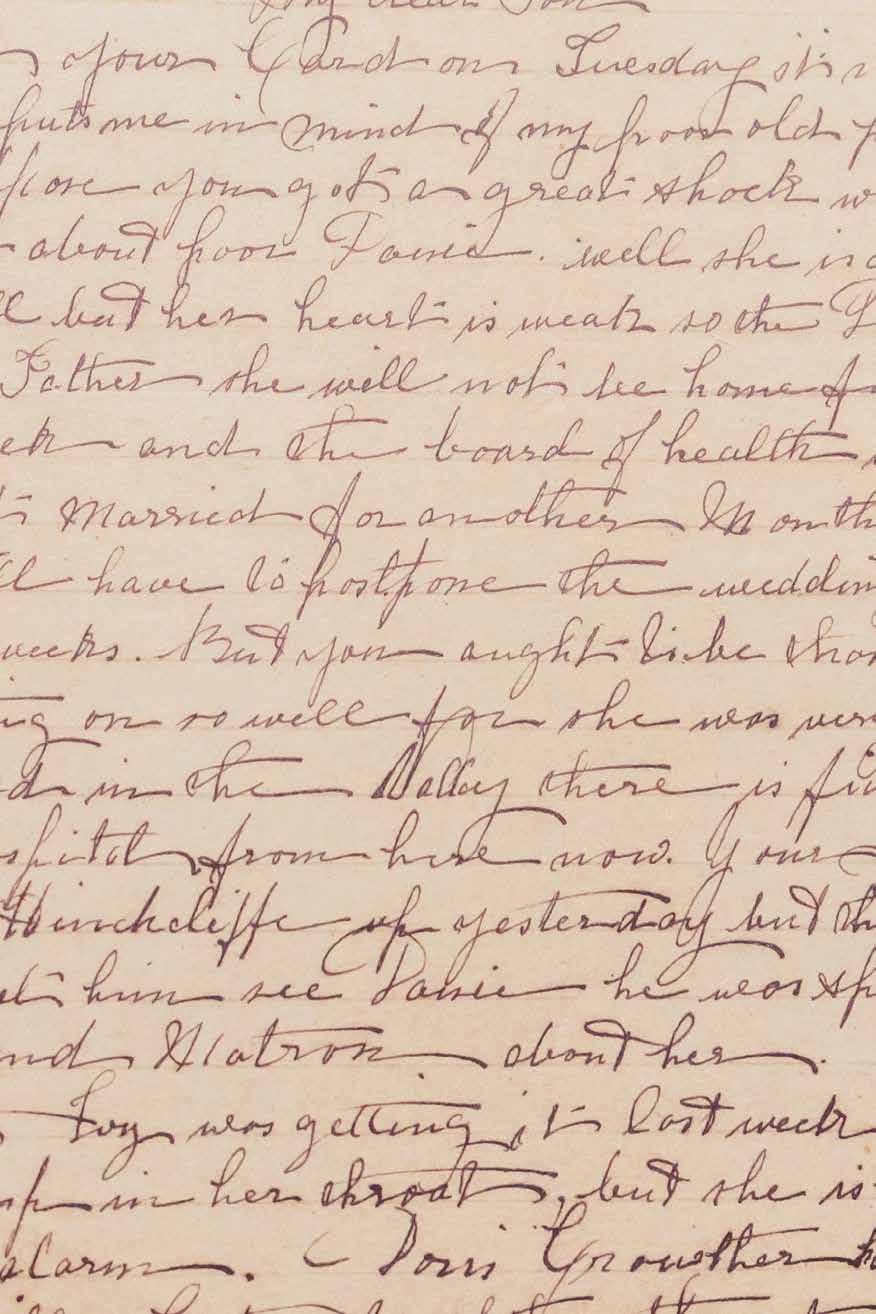 My dear Son
your Card on Tuesday it is
puts me in mind of my poor old
pose you got a great shock
about poor Janie. well she is
ll but her heart is weak so the
Father she will not be home
ek and the board of health
t Married for another Month
ll have to postpone the weddin
weeks. But you aught to be
ing on so well for she was ver
d in the Valley there is
spital from here now. Your
Hinchcliffe up yesterday but th
et him see Janie he was sp
nd Matron about her.
Ivy was getting it last week
up in her throat, but she is
alarm. Doris Crowther